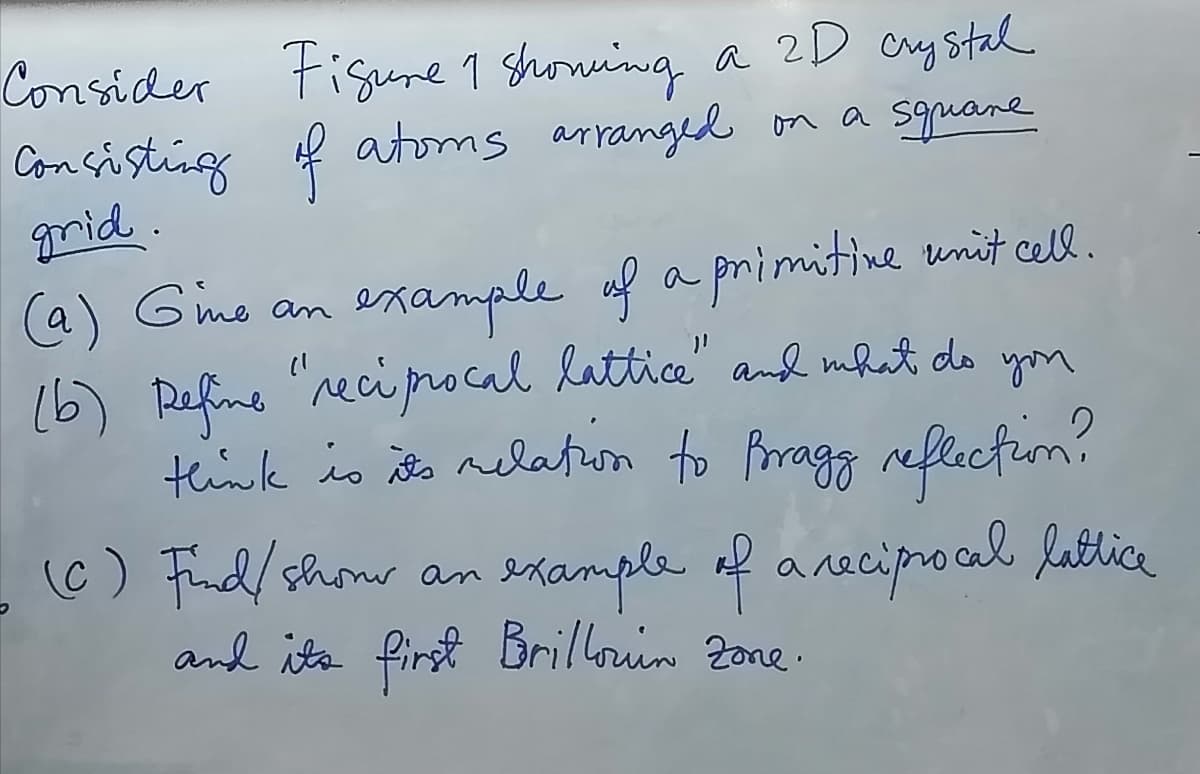 Consider Figure 1 showing a 2D crystal
Consisting of atoms arranged on a square
grid.
(a) Give an example of a primitive unit cell.
(b) Define "reciprocal lattice" and what do you
think is its relation to Bragg reflection?
(c) Find/show an example of a reciprocal lattice
and its first Brillouin zone.